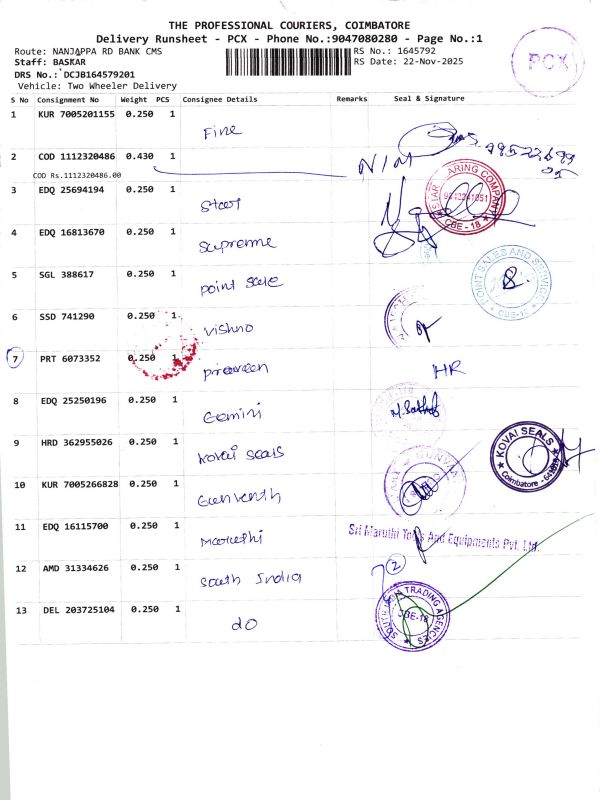 THE PROFESSIONAL COURIERS, COIMBATORE
Delivery Runsheet - PCX - Phone No.:9047080280 - Page No.:1
Route: NANJAPPA RD BANK CMS RS No.: 1645792
Staff: BASKAR RS Date: 22-Nov-2025
DRS No.: DCJB164579201
Vehicle: Two Wheeler Delivery
PCX
S No Consignment No Weight PCS Consignee Details Remarks Seal & Signature
1 KUR 7005201155 0.250 1 Fine
2 COD 1112320486 0.430 1 N/M
COD Rs.1112320486.00
3 EDQ 25694194 0.250 1 Star
STAR BEARING COMPANY CBE-18
4 EDQ 16813670 0.250 1 Supreme
5 SGL 388617 0.250 1 point sale
POINT SALES AND SERVICE CBE-18
6 SSD 741290 0.250 1 Vishno
7 PRT 6073352 0.250 1 praveen HR
8 EDQ 25250196 0.250 1 Gemini
9 HRD 362955026 0.250 1 Kovai seals
KOVAI SEALS Coimbatore
10 KUR 7005266828 0.250 1 Gunventh
11 EDQ 16115700 0.250 1 Maruthi
Sri Maruthi Tools And Equipments Pvt. Ltd.
12 AMD 31334626 0.250 1 South India 2
13 DEL 203725104 0.250 1 do
SOUTH INDIA TRADING AGENCIES CBE-18